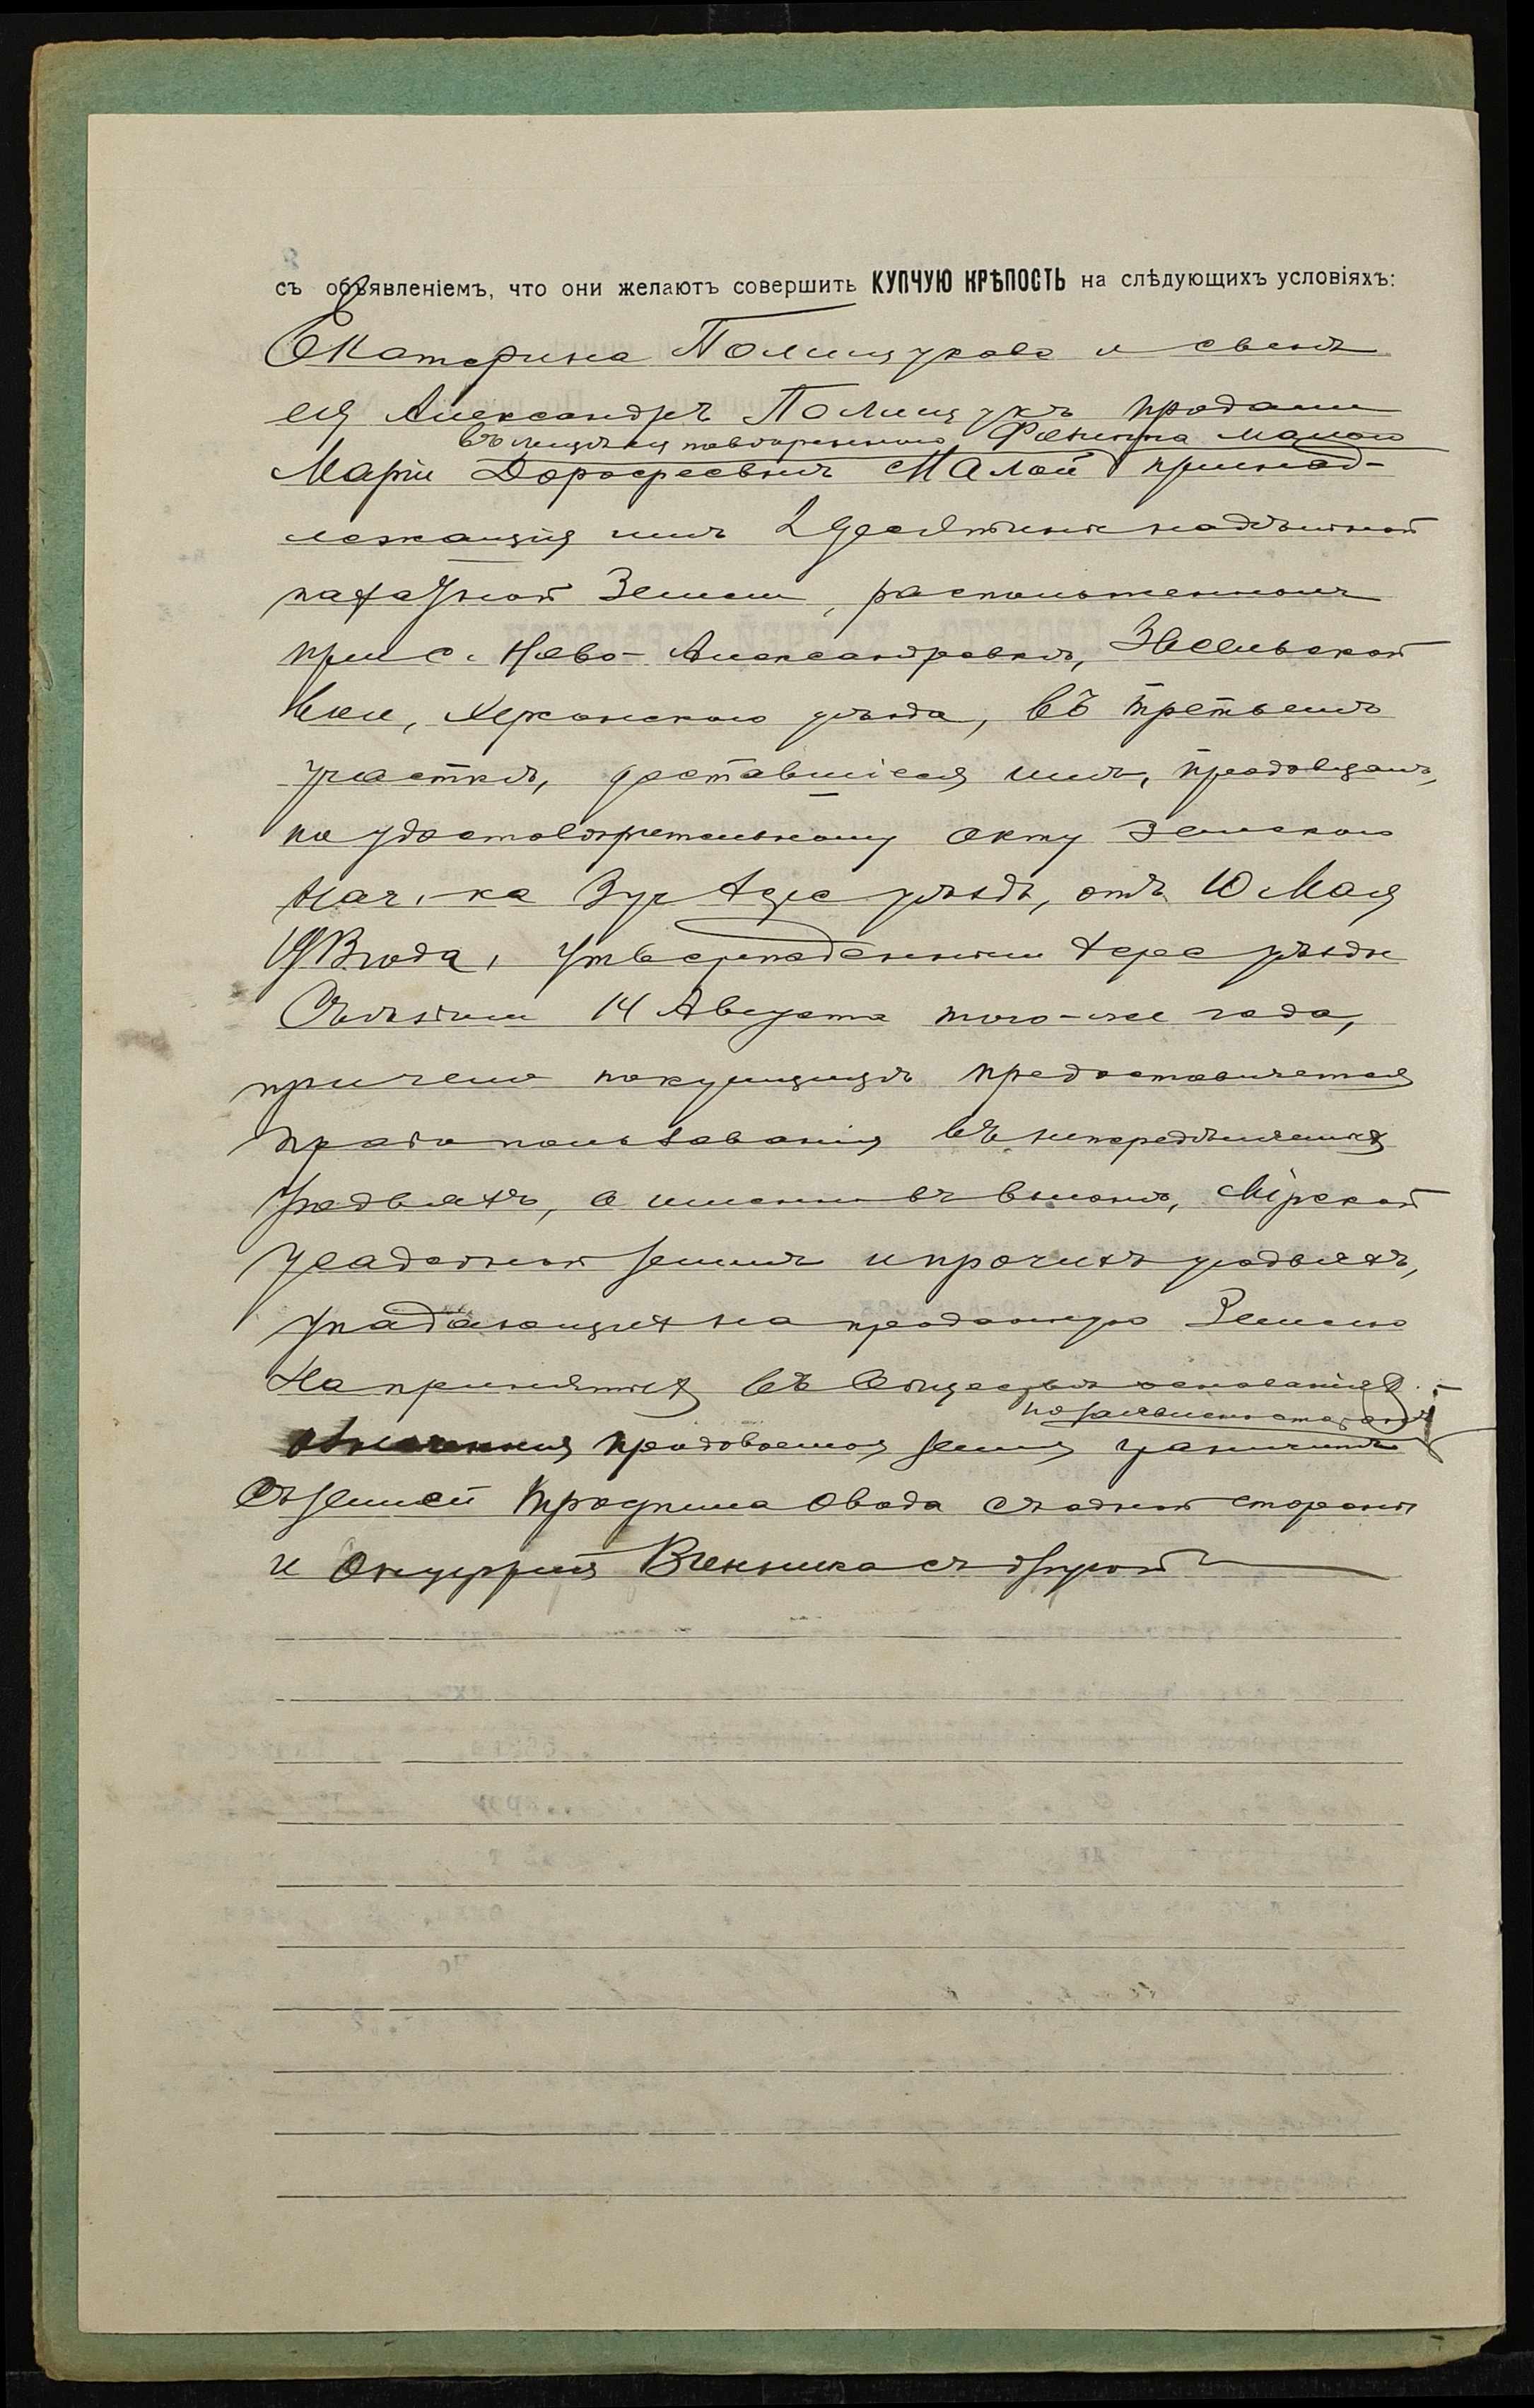 съ объявленіемъ, что они желаютъ совершить КУПЧУЮ КРѢПОСТЬ на слѣдующихъ условіяхъ:
Екатерина Полищукова и сынъ
ея Александръ Полищукъ продали
въ лицѣ ея повѣреннаго Малого
Маріи Дорофеевнѣ Малой принад-
лежащія имъ 2 десятины надѣльной
пахатной земли, расположенной
при с. Ново-Александровкѣ,
вол., Херсонскаго уѣзда, въ третьемъ
участкѣ, доставшіеся имъ, продавцамъ,
по удостовѣрительному акту Земскаго
Нач.-ка 3 уч. уѣзда, отъ 10 Мая
года, утвержденному уѣздн.
Съѣздомъ 14 Августа того-же года,
причемъ покупщицѣ предоставляется
право пользованія въ непередѣляемыхъ
угодьяхъ, а именно въ выгонѣ, мірской
усадебной землѣ и прочихъ угодьяхъ,
упадающихъ на проданную Землю
на принятыхъ въ Обществѣ основаніяхъ. –
по заявленію сторонъ
продаваемая земля граничитъ
съ землей Трофима Овода съ одной стороны
и Винника съ другой